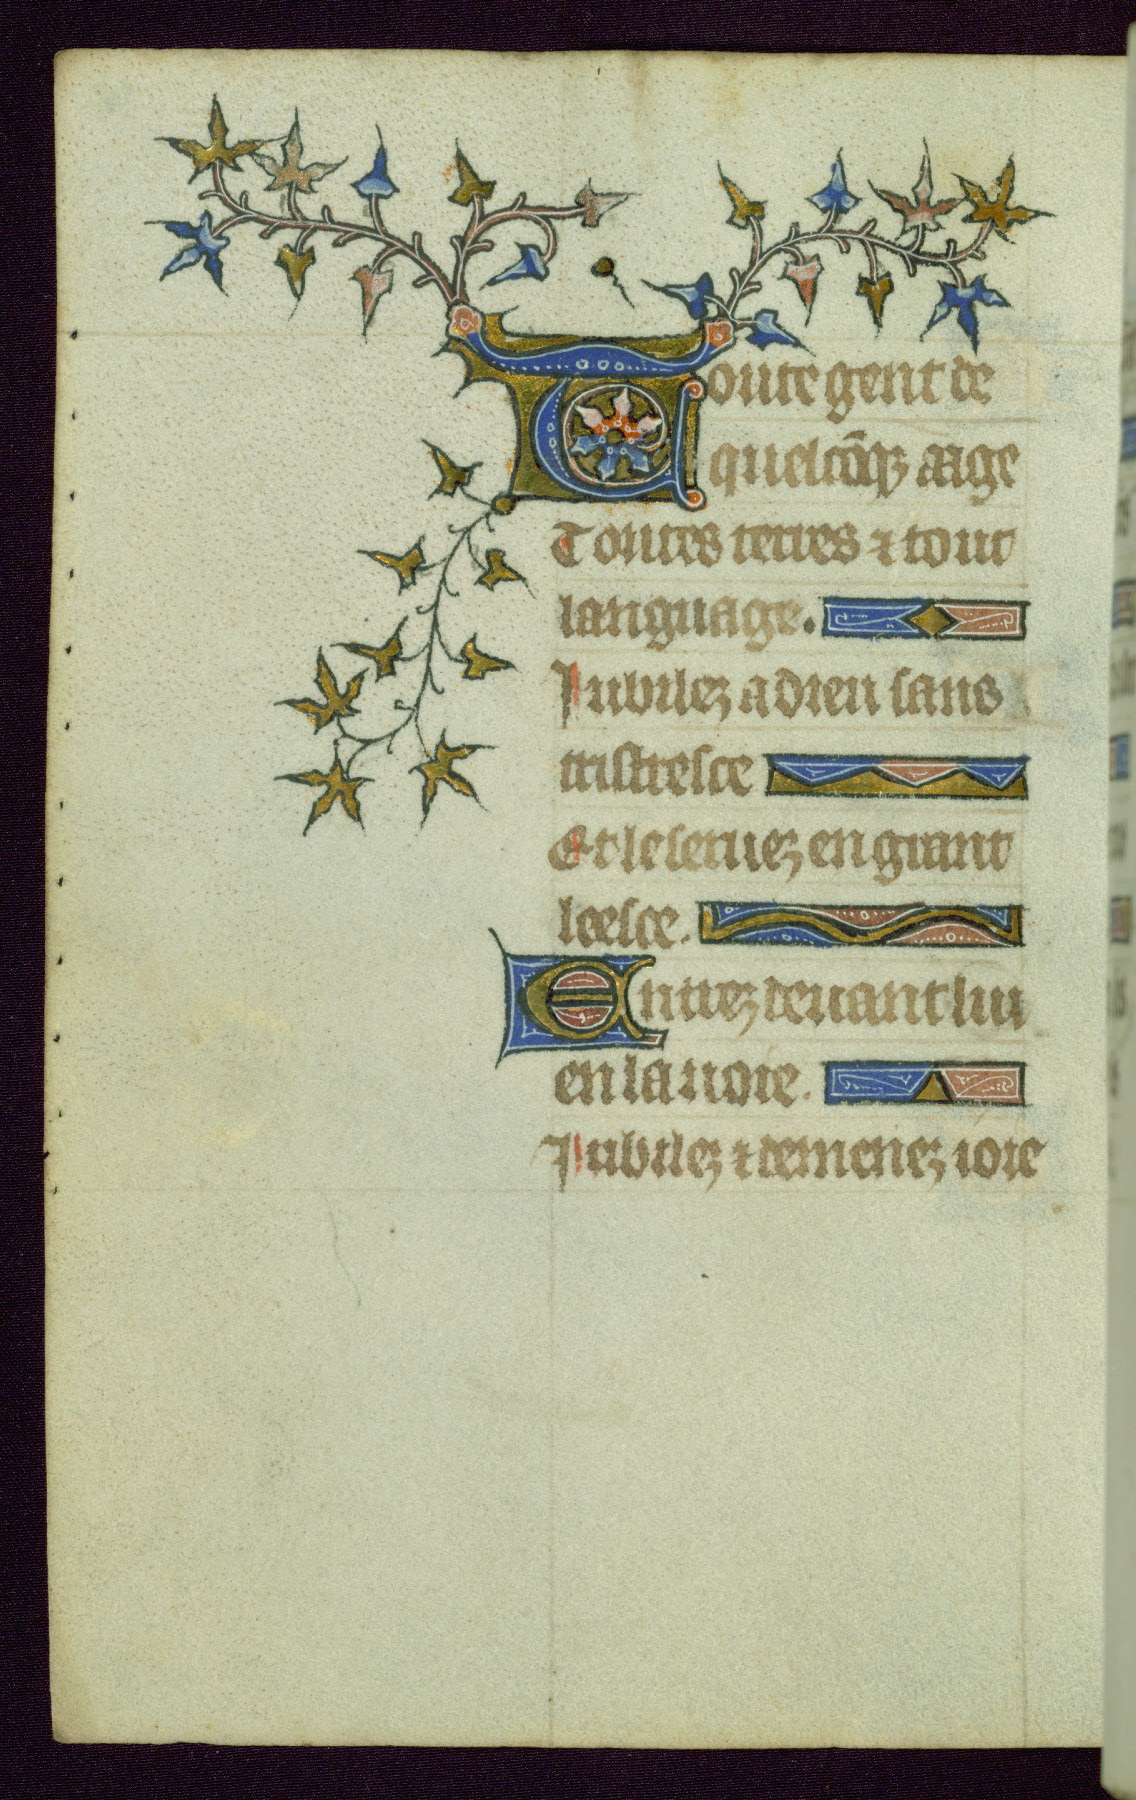 Toute gent de
quelcōq̄ aage
Toutes terres ⁊ tout
language.
Jubilez a dieu sans
tristresce
Et le seruez en grant
leesce.
Entrez deuant lui
en la uoie.
Jubilez ⁊ demenez ioie